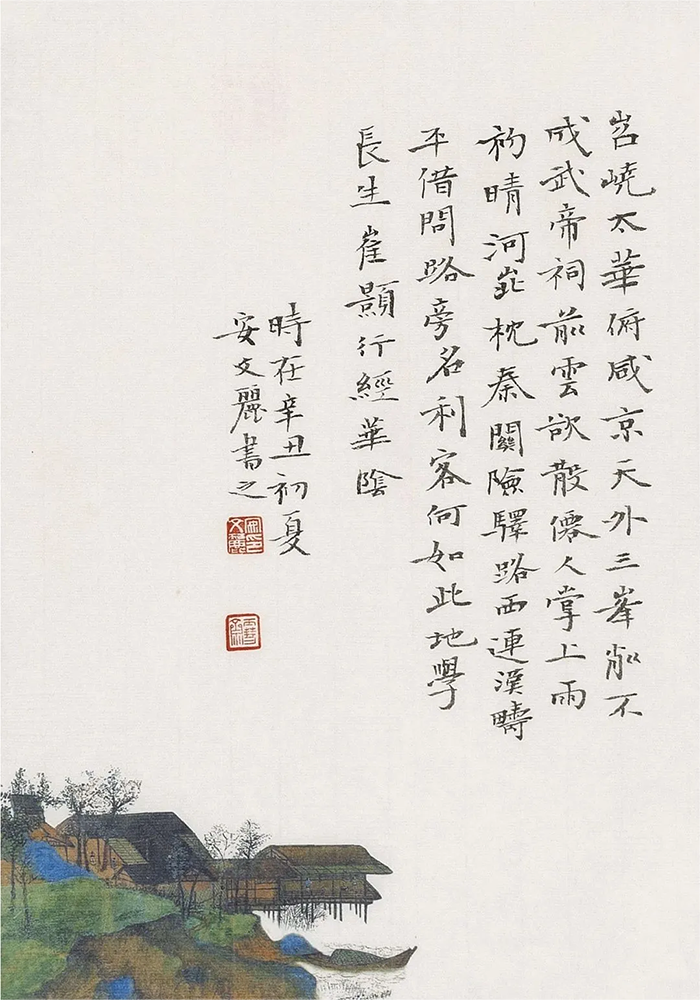 岧嶢太華俯咸京天外三峯削不
成武帝祠前雲欲散僊人掌上雨
初晴河山北枕秦關險驛路西連漢疇
平借問路旁名利客何如此地學
長生 崔顥行經華陰
時在辛丑初夏
安文麗書之
安印文麗